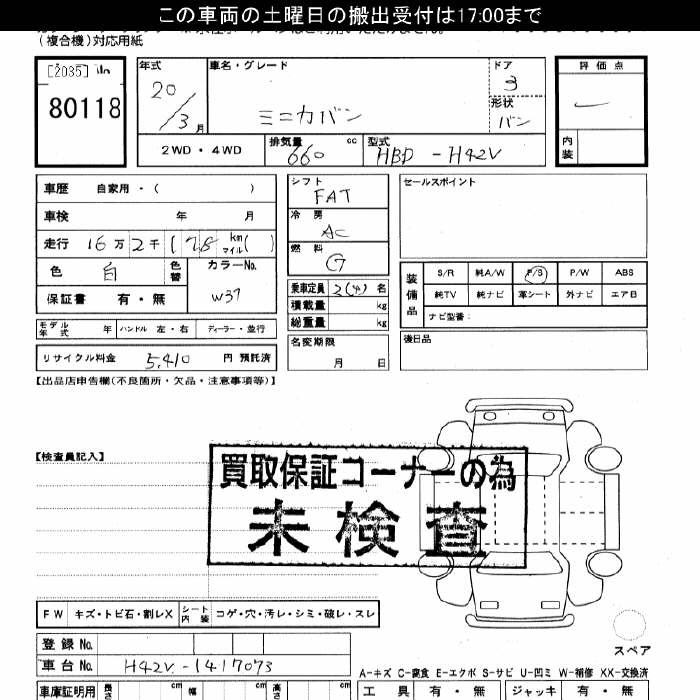 この車両の土曜日の搬出受付は17:00まで
(複合機)対応用紙
[2035]
80118
年式 20/3月
車名・グレード ミニカバン
ドア 3
形状 バン
評価点
内装
2WD・4WD
排気量 660 cc
型式 HBD-H42V
車歴 自家用・( )
車検 年 月
走行 16万2千(78 km マイル( )
色 白 色替
カラーNo. W37
保証書 有・無
モデル年式 年 ハンドル 左・右 ディーラー・並行
リサイクル料金 5,410 円 預託済
シフト FAT
冷房 AC
燃料 G
乗車定員 2(4)名
積載量 kg
総重量 kg
名変期限
月 日
セールスポイント
装備品
S/R 純A/W P/S P/W ABS
純TV 純ナビ 革シート 外ナビ エアB
ナビ型番:
後日品
【出品店申告欄(不良箇所・欠品・注意事項等)】
【検査員記入】
買取保証コーナーの為
未検査
FW キズ・トビ石・割レX シート内装 コゲ・穴・汚レ・シミ・破レ・スレ
スペア
登録No.
車台No. H42V-1417073
A-キズ C-腐食 E-エクボ S-サビ U-凹ミ W-補修 XX-交換済
車庫証明用 長さ cm 幅 cm 高さ cm
工具 有・無 ジャッキ 有・無